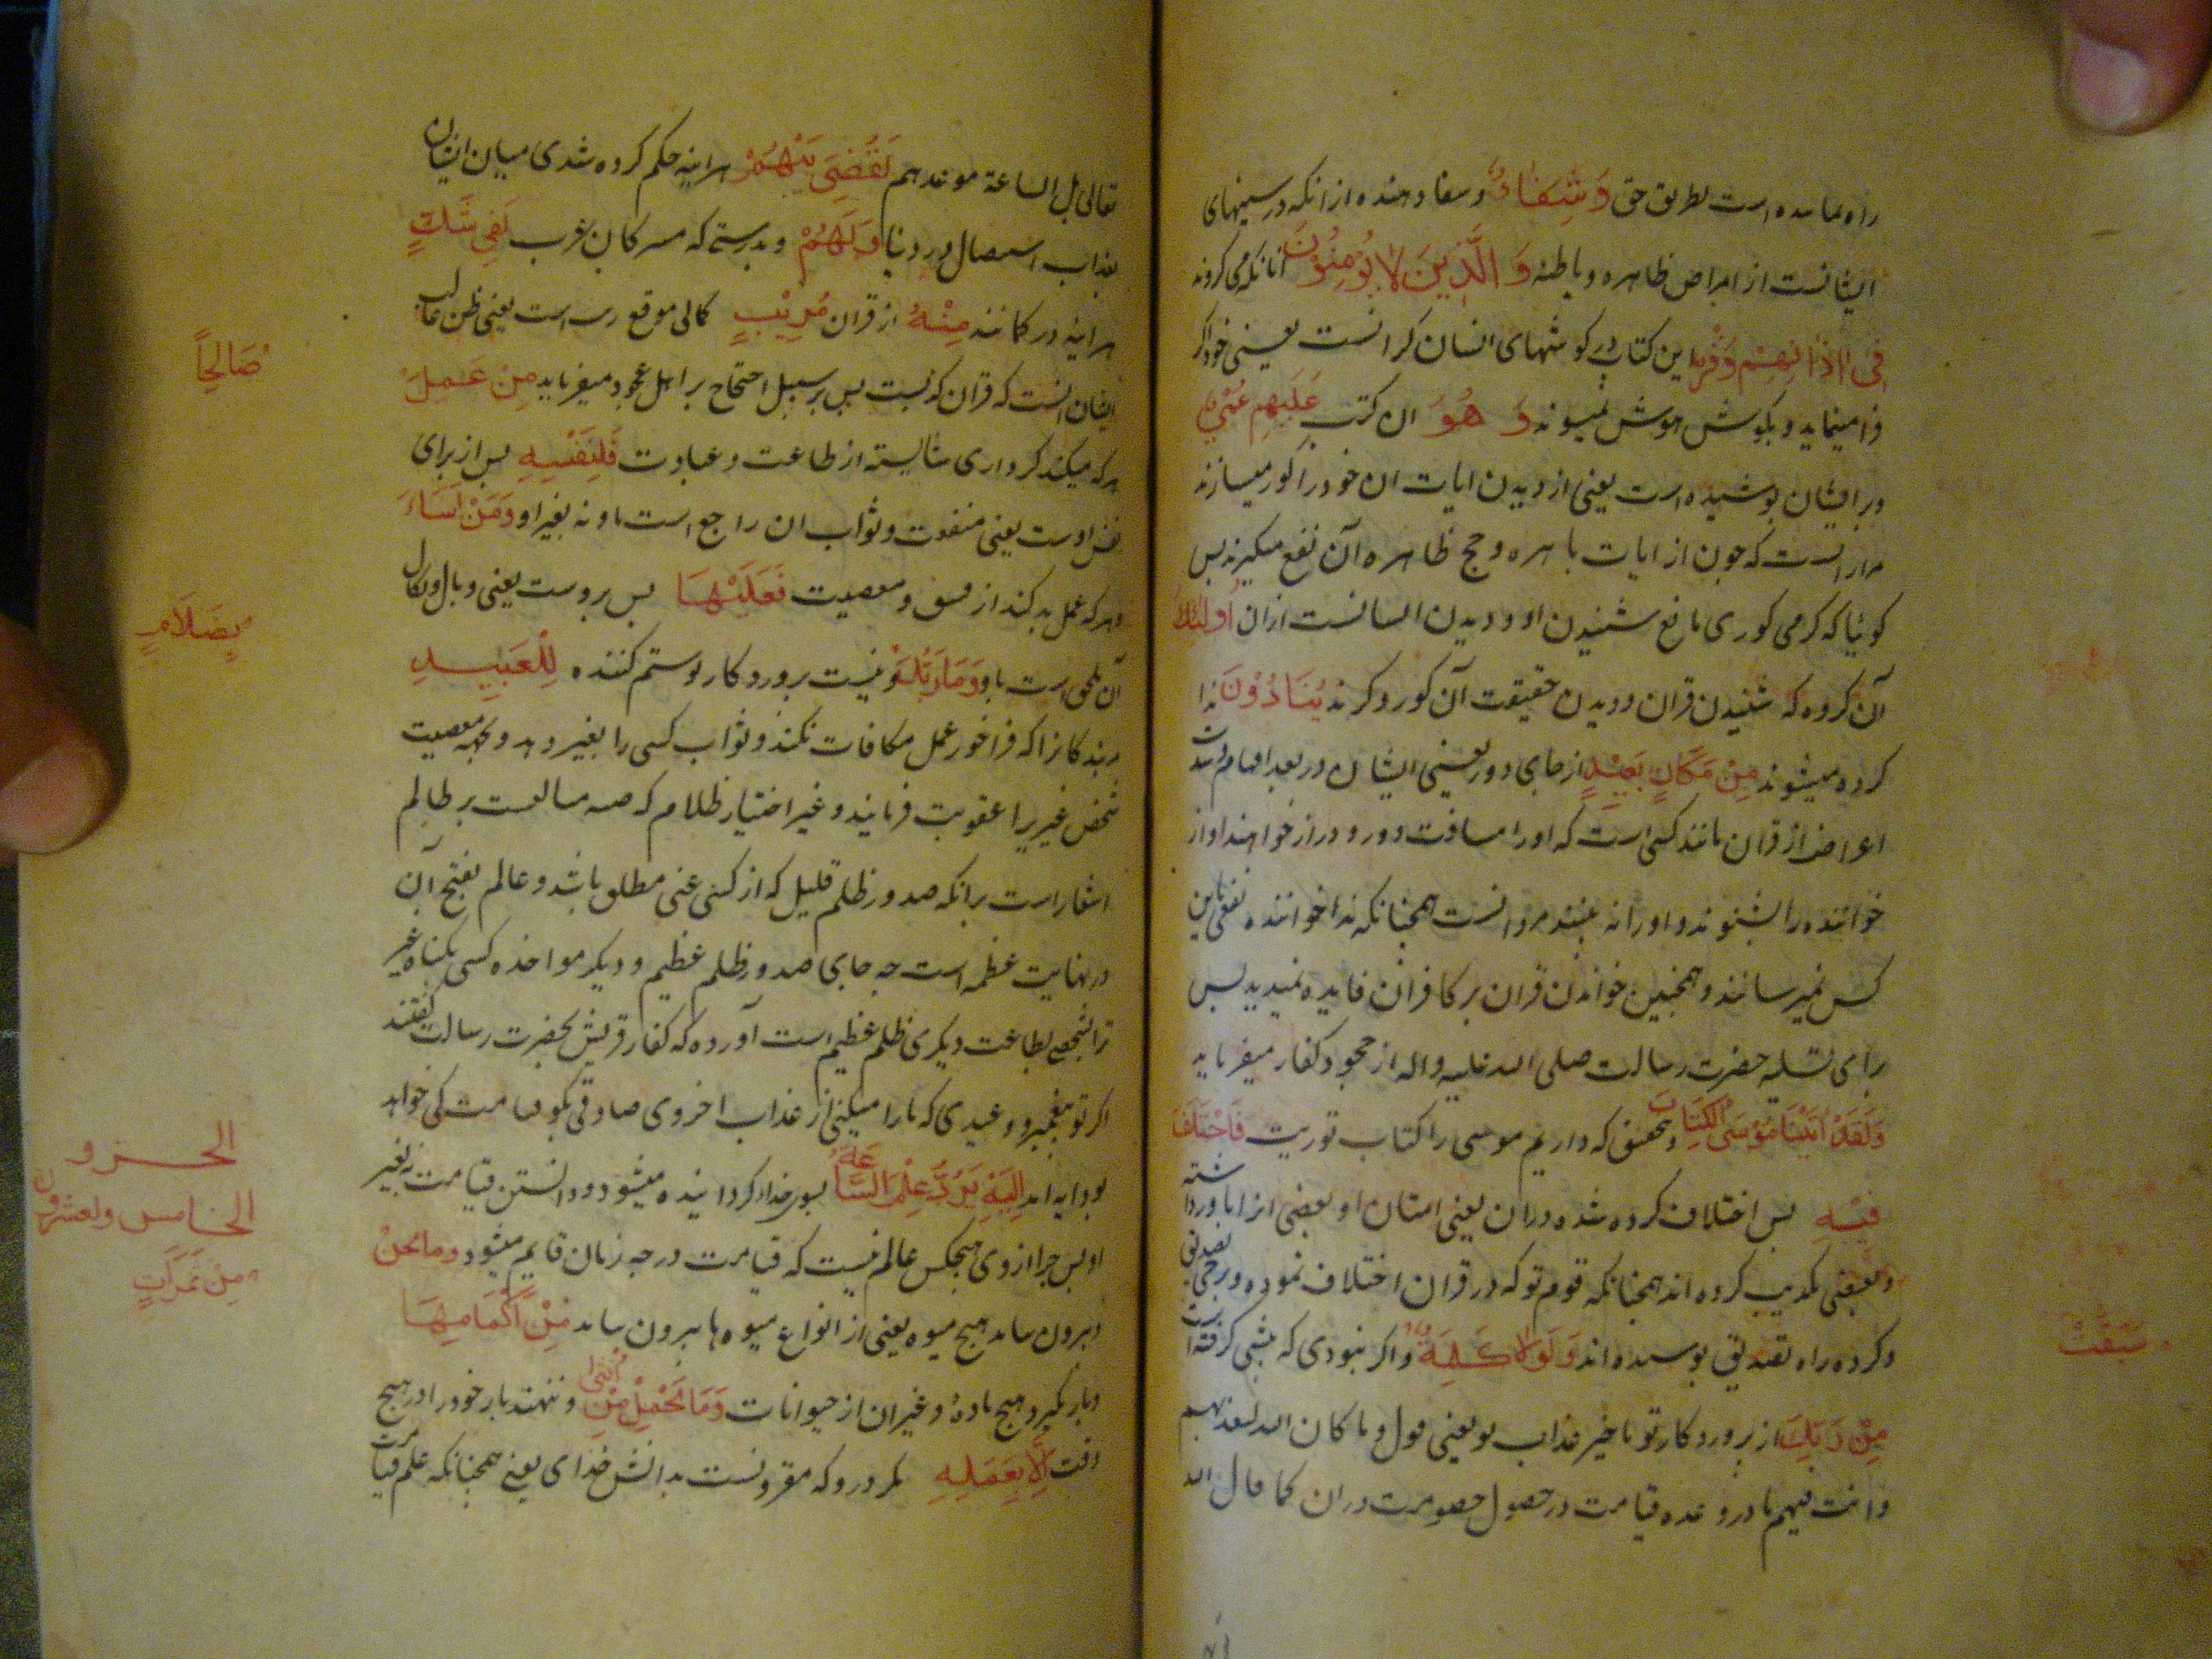 راه نماینده است بطریق حق وَشِفَاءٌ و شفا دهنده از انکه در سینهای
ایشانست از امراض ظاهره و باطنه وَالَّذِينَ لَا يُؤْمِنُوْنَ انانکه نمی کروند
فِى اذَانِهِمْ وَقْرٌ این کتاب در کوشهای انسان کرانست یعنی خود را کر
وا مینماید و بکوش هوش نمیشنوند وَهُوَ ان کتب عَلَيْهِمْ عَمًى
بر ایشان پوشیده است یعنی از دیدن ایات ان خود را کور میسازند
مراد انست که چون از ایات باهره و حجج ظاهره آن نفع نمیکیرند پس
کوئیا که کری و کوری مانع شنیدن او و دیدن ایشانست ازان اُولئِكَ
آن کروه که شنیدن قران و دیدن حقیقت آن کور و کرند يُنَادُوْنَ ندا
کرده میشوند مِنْ مَكَانٍ بَعِيْدٍ از جای دور یعنی ایشان در بعد افهام است
اعراض از قران مانند کسی است که او را مسافت دور و دراز خواهند اواز
خواننده را شنوند و او را نه بینند مراد انست همچنانکه ندا خواننده نفعی باین
کس نمیرسانند و همچنین خواندن قران بر کافران فایده نمیدهد پس
برای تسلیه حضرت رسالت صلی الله علیه واله از جحود کفار میفرماید
وَلَقَدْ آتَيْنَا مُوْسَى الْكِتَابَ و بتحقیق که دادیم موسی را کتاب توریت فَاخْتُلِفَ
فِيْهِ پس اختلاف کرده شده دران یعنی امتان او بعضی انرا باور داشته
و بعضی تکذیب کرده اند همچنانکه قوم تو که در قران اختلاف نموده و برخی تصدیق
وکرده راه تصدیق پوسیده اند وَلَوْلَا كَلِمَةٌ و اکر نبودی که پیشی کرفته است
سَبَقَتْ
مِنْ رَبِّكَ از پروردکار تو تاخیر عذاب یعنی قول وما کان الله لیعذبهم
وانت فیهم یا در وعده قیامت در حصول خصومت دران کما قال الله
تعالی بل الساعة موعدهم لَقُضِيَ بَيْنَهُمْ هراینه حکم کرده شدی میان ایشان
بعذاب استیصال در دنیا وَاِنَّهُمْ و بدرستی که مشرکان عرب لَفِى شَكٍّ
هراینه در کمانند مِنْهُ از قران مُرِيْبٍ کمانی موقع ریب است یعنی ظن غالب
ایشان انست که قران کذبست پس بر سبیل احتجاج بر اهل جحود میفرماید مِنْ عَمِلَ
صَالِحًا
هرکه میکند کرداری شایسته از طاعت و عبادت فَلِنَفْسِهِ پس از برای
نفس اوست یعنی منفعت و ثواب ان راجع است باو نه بغیر او وَمَنْ اَسَاءَ
و هرکه عمل بد کند از فسق و معصیت فَعَلَيْهَا پس بر وست یعنی وبال و نکال
آن ملحق است باو وَمَا رَبُّكَ و نیست پروردکار تو ستم کننده لِلْعَبِيدِ
بِضَلَامٍ
مر بندکانرا که فراخور عمل مکافات نکند و ثواب کسی را بغیر دهد و بجهة معصیت
شخص غیری را عقوبت فرمایند و غیر اختیار ظلام که صیغه مبالغست بر ظالم
اشعار است برانکه صدور ظلم قلیل که از کسی غنی مطلق باشد و عالم بقبح آن
در نهایت عظمه است چه جای صدور ظلم عظیم و دیکر مواخذه کسی بکناه غیر
آورده که کفار قریش بحضرت رسالت کفتند
اکر تو پیغمبر و وعیدی که مارا میکنی از عذاب اخروی صادقی بکو قیامت کی خواهد
بود ایه امد اِلَيْهِ يُرَدُّ عِلْمُ السَّاعَةِ بسوی خدا رد کردانیده میشود و دانستن قیامت نه بغیر
الجزو
الخامس والعشرون
او پس جز از وی هیچکس عالم نیست که قیامت در چه زمان قایم میشود وَمَا تَخْرُجُ
مِنْ ثَمَرَاتٍ
و بیرون نیاید هیچ میوه یعنی از انواع میوه ها بیرون نیاید مِنْ اَكْمَامِهَا
و بار نکیرد هیچ ماده و غیران از حیوانات وَمَا تَحْمِلُ مِنْ اُنْثٰى و ننهند بار خود را در هیچ
وقت اِلَّا بِعِلْمِهِ مکر در وکه مقرونست بدانش خدای یعنی همچنانکه علم قیامت